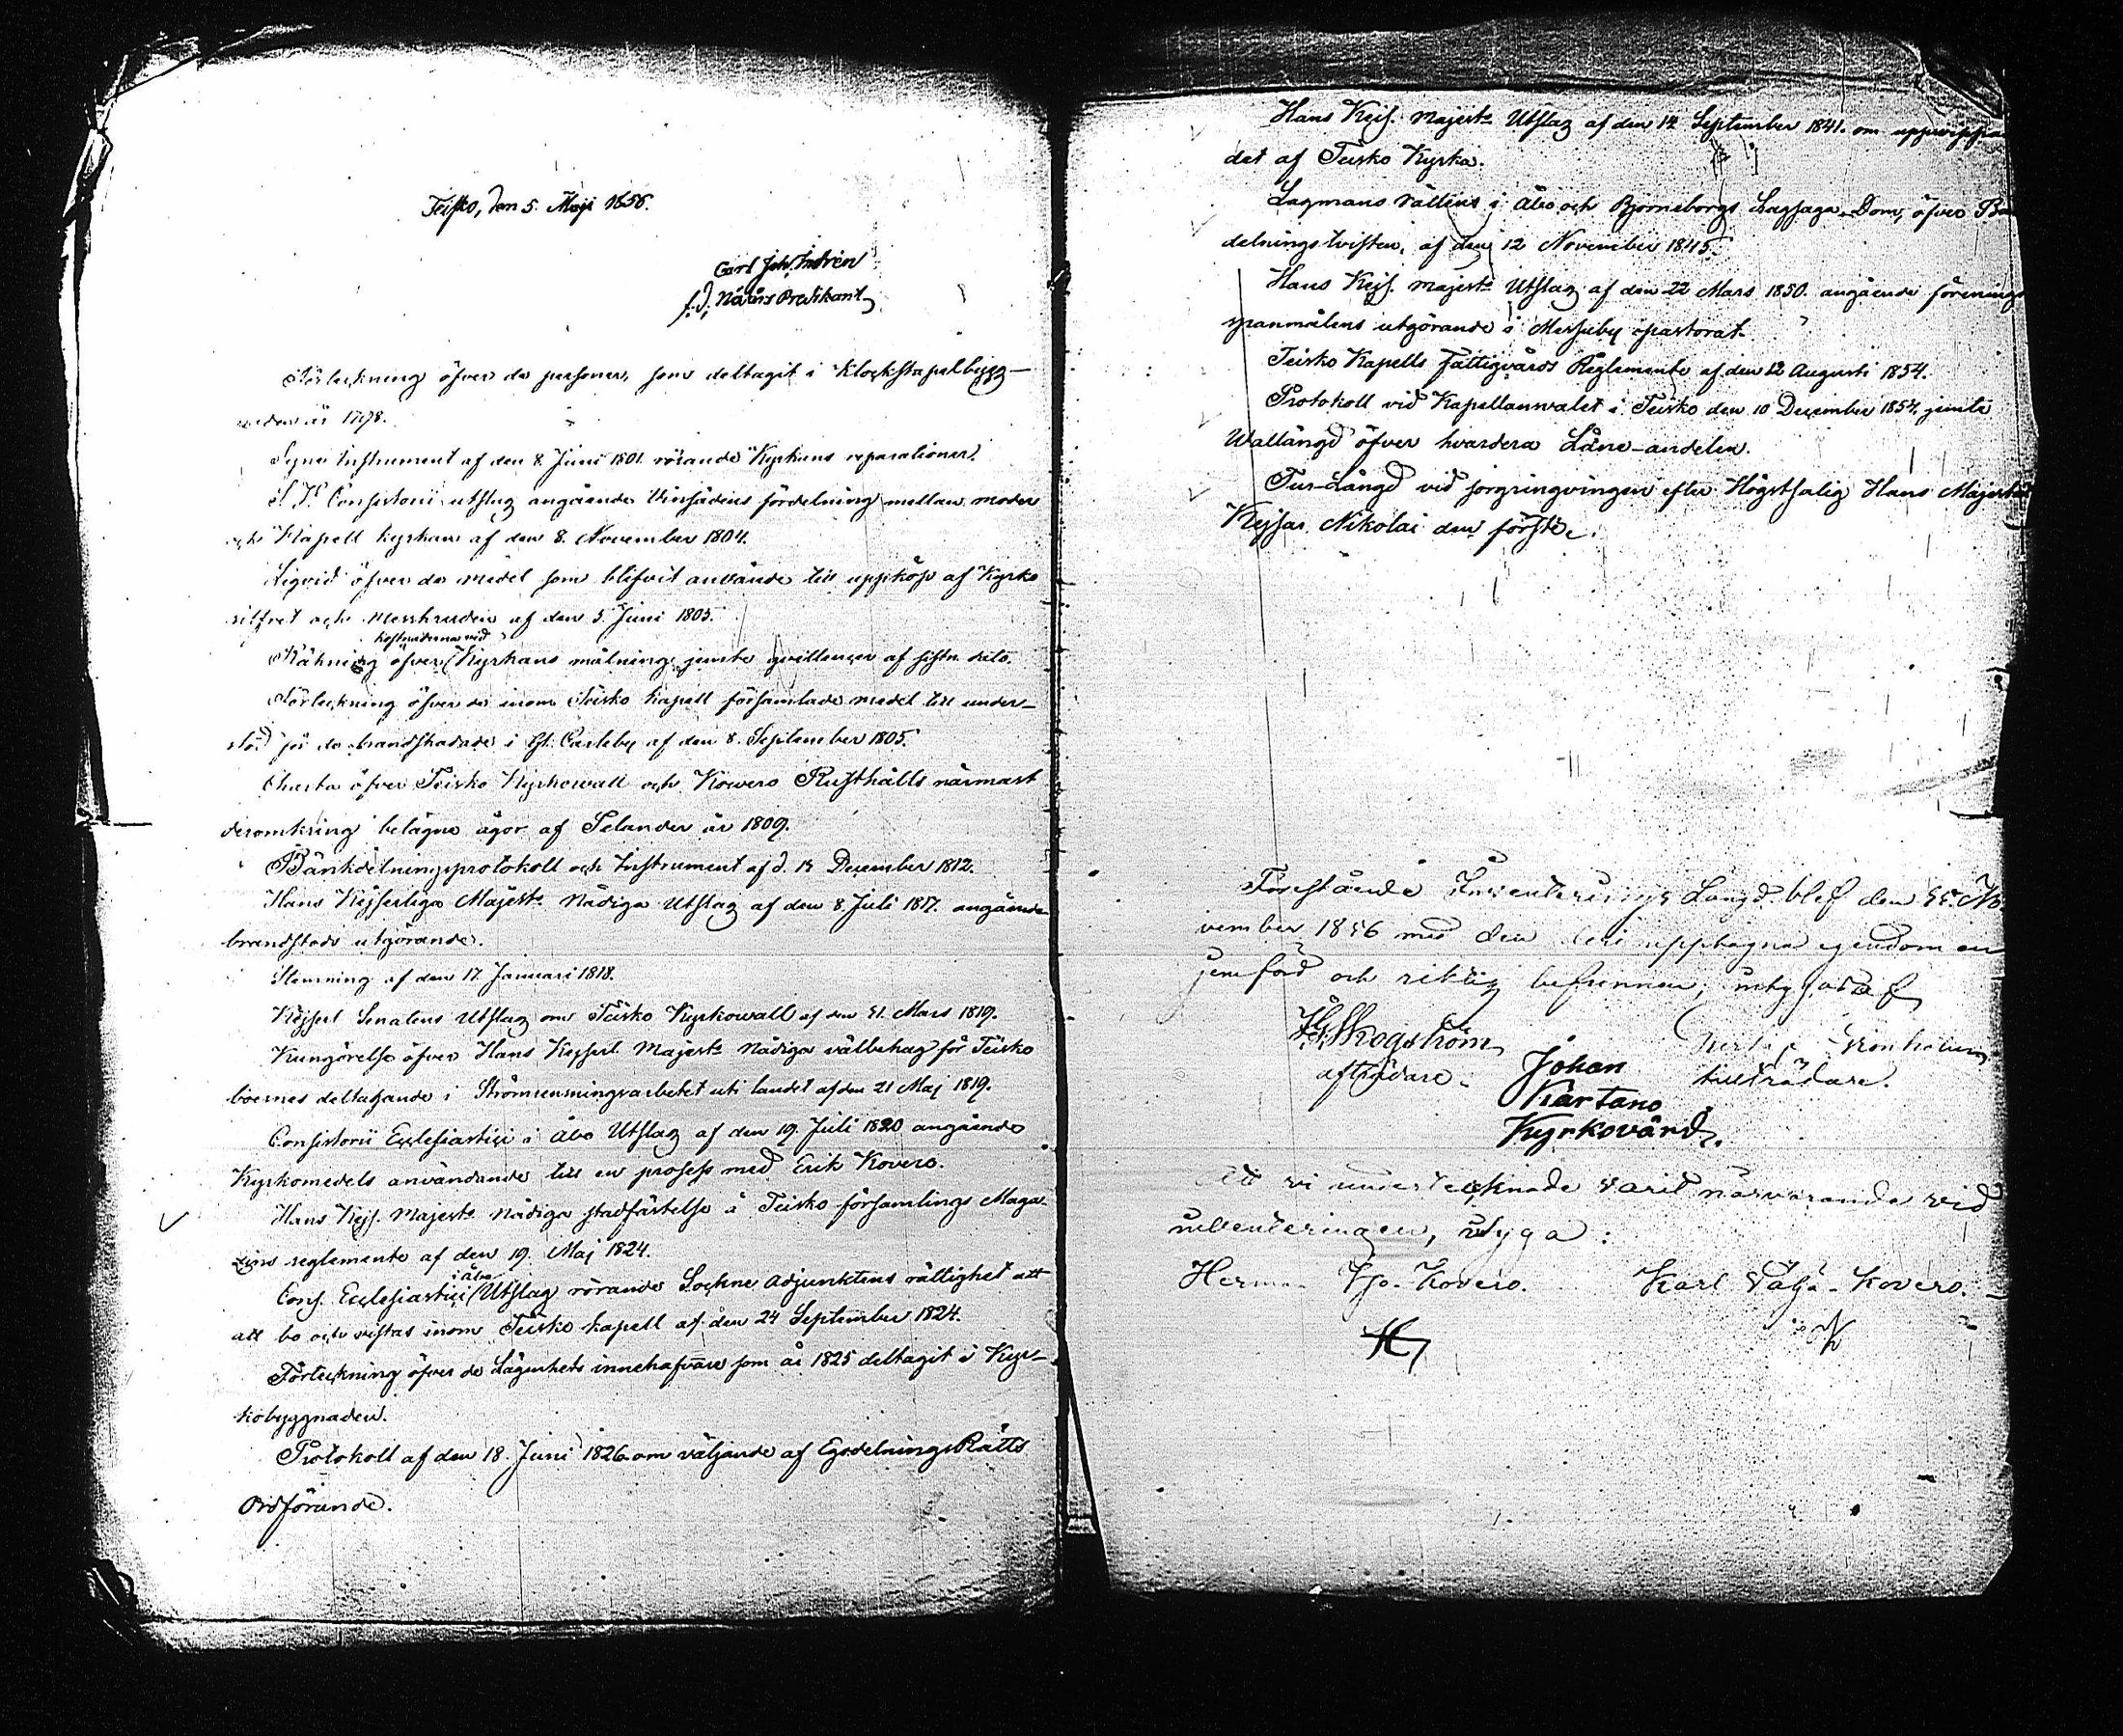 Teisko, den 5. Maji 1856.
Carl Joh. Indrén
f.d. Nådårs Predikant
Förteckning öfver de personer, som deltagit i Klockstapelbygg-
naden år 1798.
Syne Instrument af den 8. Juni 1801. rörande Kyrkans reparationer.
Consistorii utslag angående Vinsädens fördelning mellan moder
och Kapell kyrkan af den 8. November 1804.
Liqvid öfver de medel som blifvit använde till uppköp af Kyrko
silfret och Messkruden af den 5. Juni 1805.
kostnaderna vid
Räkning öfver Kyrkans målning jemte qvittencer af sistn. dato.
Förteckning öfver de inom Teisko Kapell församlade medel till under-
stöd för de brandskadade i Gl. Carleby af den 8. September 1805.
Charta öfver Teisko Kyrkowall och Kowero Rusthålls närmast
deromkring belägne ägor af Selander år 1809.
Bänkdelningsprotokoll och Instrument af d. 13 December 1812.
Hans Kejserliga Majests Nådiga Utslag af den 8. Juli 1817. angående
brandstods utgörande.
Stemning af den 17. Januari 1818.
Kejserl Senatens Utslag om Teisko Kyrkowall af den 31. Mars 1819.
Kungörelse öfver Hans Kejserl. Majests Nådiga välbehag för Teisko
boernes deltagande i Strömrensningsarbetet uti landet af den 21 Maj 1819.
Consistorii Ecclesiastici i Åbo Utslag af den 19. Juli 1820 angående
Kyrkomedels användande till en process med Erik Kovero.
Hans Kejs. Majests Nådiga stadfästelse å Teisko församlings Maga-
zins reglemente af den 19. Maj 1824.
i Åbo
Cons. Ecclesiastici Utslag rörande Sockne Adjunktens rättighet att
att bo och vistas inom Teisko kapell af den 24 September 1824.
Förteckning öfver de Lägenhets innehafvare som år 1825 deltagit i Kyr-
kobyggnaden.
Protokoll af den 18. Juni 1826 om väljande af EgodelningsRätts
Ordförande.
Hans Kejs. Majests Utslag af den 14 September 1841. om
det af Teisko Kyrka.
Lagmans Rättens i Åbo och Björneborgs Lagsaga Dom, öfver
delningstvisten, af den 12 November 1845.
Hans Kejs. Majests Utslag af den 22 Mars 1850. angående förenings
spanmålens utgörande i Messuby pastorat.
Teisko Kapells Fattigvårds Reglemente af den 12 Augusti 1854.
Protokoll vid Kapellanswalet i Teisko den 10 December 1854. jemte
Wallängd öfver hvardera Låne-andelen.
Tur-Längd vid sorgringningen efter Högstsalig Hans Majestät
Kejsar Nikolai den förste.
Förestående Inventerings Längd blef den No
vember 1856 med den deri upptagna egendomen
jemförd och riktig befunnen, intygas af
Skogström
afträdare.
Gustaf Grönholm
tillträdare.
Johan
Kartano
Kyrkovärd.
Att vi undertecknade varit närvarande vid
inventeringen, intyga:
Herman Yso-Kovero. Karl Väljä-Kovero.
H K